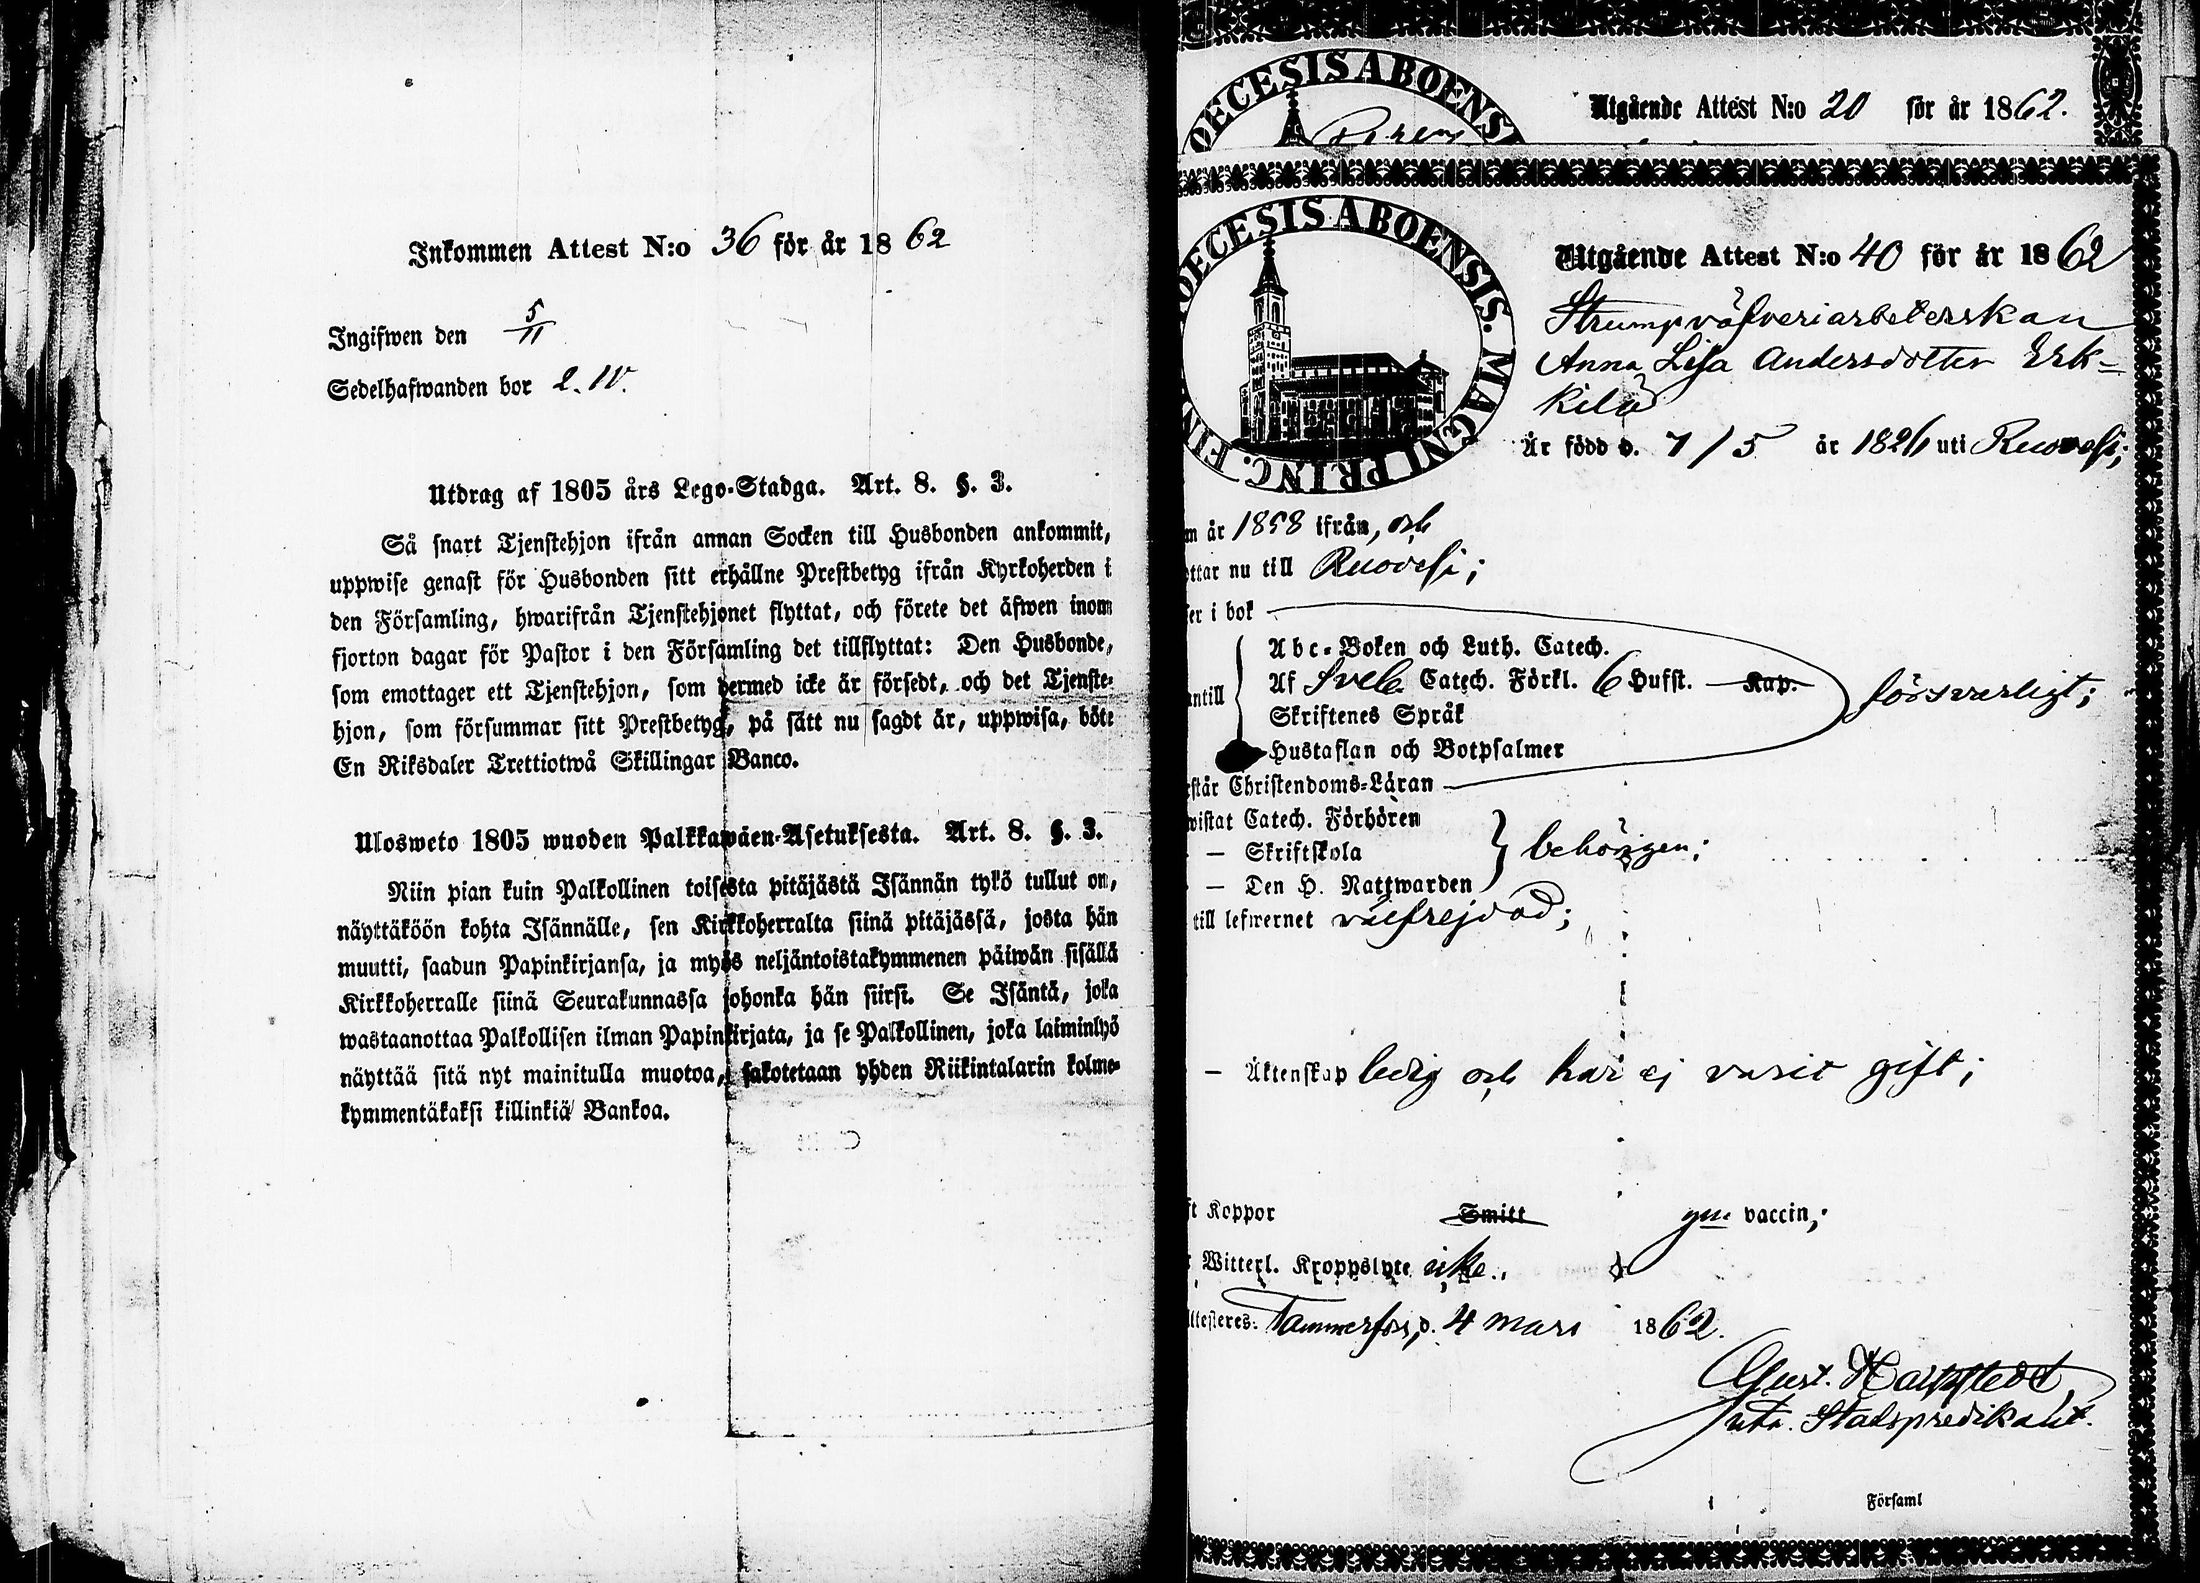 Inkommen Attest N:o 36 för år 1862
Ingifwen den 5/11
Sedelhafwanden bor 2. IV.
Utdrag af 1805 års Lego-Stadga. Art. 8. §. 3.
Så snart Tjenstehjon ifrån annan Socken till Husbonden ankommit,
uppwise genast för Husbonden sitt erhållne Prestbetyg ifrån Kyrkoherden i
den Församling, hwarifrån Tjenstehjonet flyttat, och förete det äfwen inom
fjorton dagar för Pastor i den Församling det tillflyttat: Den Husbonde,
som emottager ett Tjenstehjon, som dermed icke är försedt, och det Tjenste-
hjon, som försummar sitt Prestbetyg, på sätt nu sagdt är, uppwisa, böte
En Riksdaler Trettiotwå Skillingar Banco.
Ulosweto 1805 wuoden Palkkawäen-Asetuksesta. Art. 8. §. 3.
Niin pian kuin Palkollinen toisesta pitäjästä Isännän tykö tullut on,
näyttäköön kohta Isännälle, sen Kirkkoherralta siinä pitäjässä, josta hän
muutti, saadun Papinkirjansa, ja myös neljäntoistakymmenen päiwän sisällä
Kirkkoherralle siinä Seurakunnassa johonka hän siirsi. Se Isäntä, joka
wastaanottaa Palkollisen ilman Papinkirjata, ja se Palkollinen, joka laiminlyö
näyttää sitä nyt mainitulla muotoa, sakotetaan yhden Riikintalarin kolme-
kymmentäkaksi killinkiä Bankoa.
OECESIS ABOENS
Utgående Attest N:o 20 för år 1862.
OECESIS ABOENSIS. MAGNI PRINC. FIN
Utgående Attest N:o 40 för år 1862
Strumpväfveriarbeterskan
Anna Lisa Andersdotter Erk-
kilä
Är född d. 7/5 år 1826 uti Ruovesi;
m år 1858 ifrån, och
ottar nu till Ruovesi;
ser i bok
Abc-Boken och Luth. Catech.
Af Sveb. Catech. Förkl. 6 Hufst. Kap.
antill
försvarligt;
Skriftenes Språk
Hustaflan och Botpsalmer
rstår Christendoms-Läran
wistat Catech. Förhören
— Skriftskola
behörigen;
— Den H. Nattwarden
till lefwernet välfrejdad;
— Äktenskap ledig och har ej varit gift;
ft Koppor Smitt gm vaccin;
Witterl. Kroppslyte icke.
Attesteres: Tammerfors, d. 4 mars 1862.
Gust.
Stadspredikant.
Församl